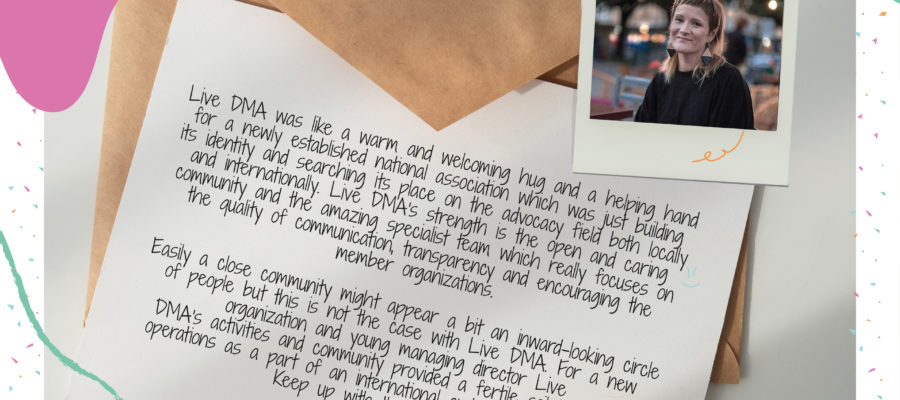 Live DMA was like a warm and welcoming hug and a helping hand
for a newly established national association which was just building
its identity and searching its place on the advocacy field both locally
and internationally. Live DMA's strength is the open and caring
community and the amazing specialist team which really focuses on
the quality of communication, transparency and encouraging the
member organizations.
Easily a close community might appear a bit an inward-looking circle
of people but this is not the case with Live DMA. For a new
organization and young managing director Live
DMA's activities and community provided a fertile
operations as a part of an international
Keep up with